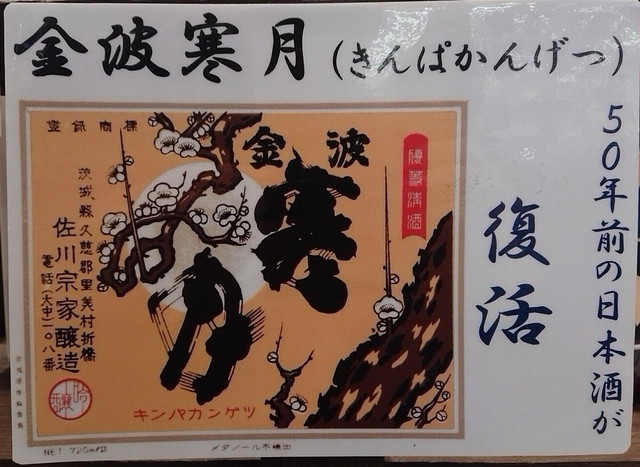 金波寒月(きんぱかんげつ)
50年前の日本酒が
復活
登録商標
金波
寒月
優等清酒
茨城縣久慈郡里美村折橋
佐川宗家醸造
電話(大中)一〇八番
キンパカンゲツ
NET 720ml詰
メタノール不検出